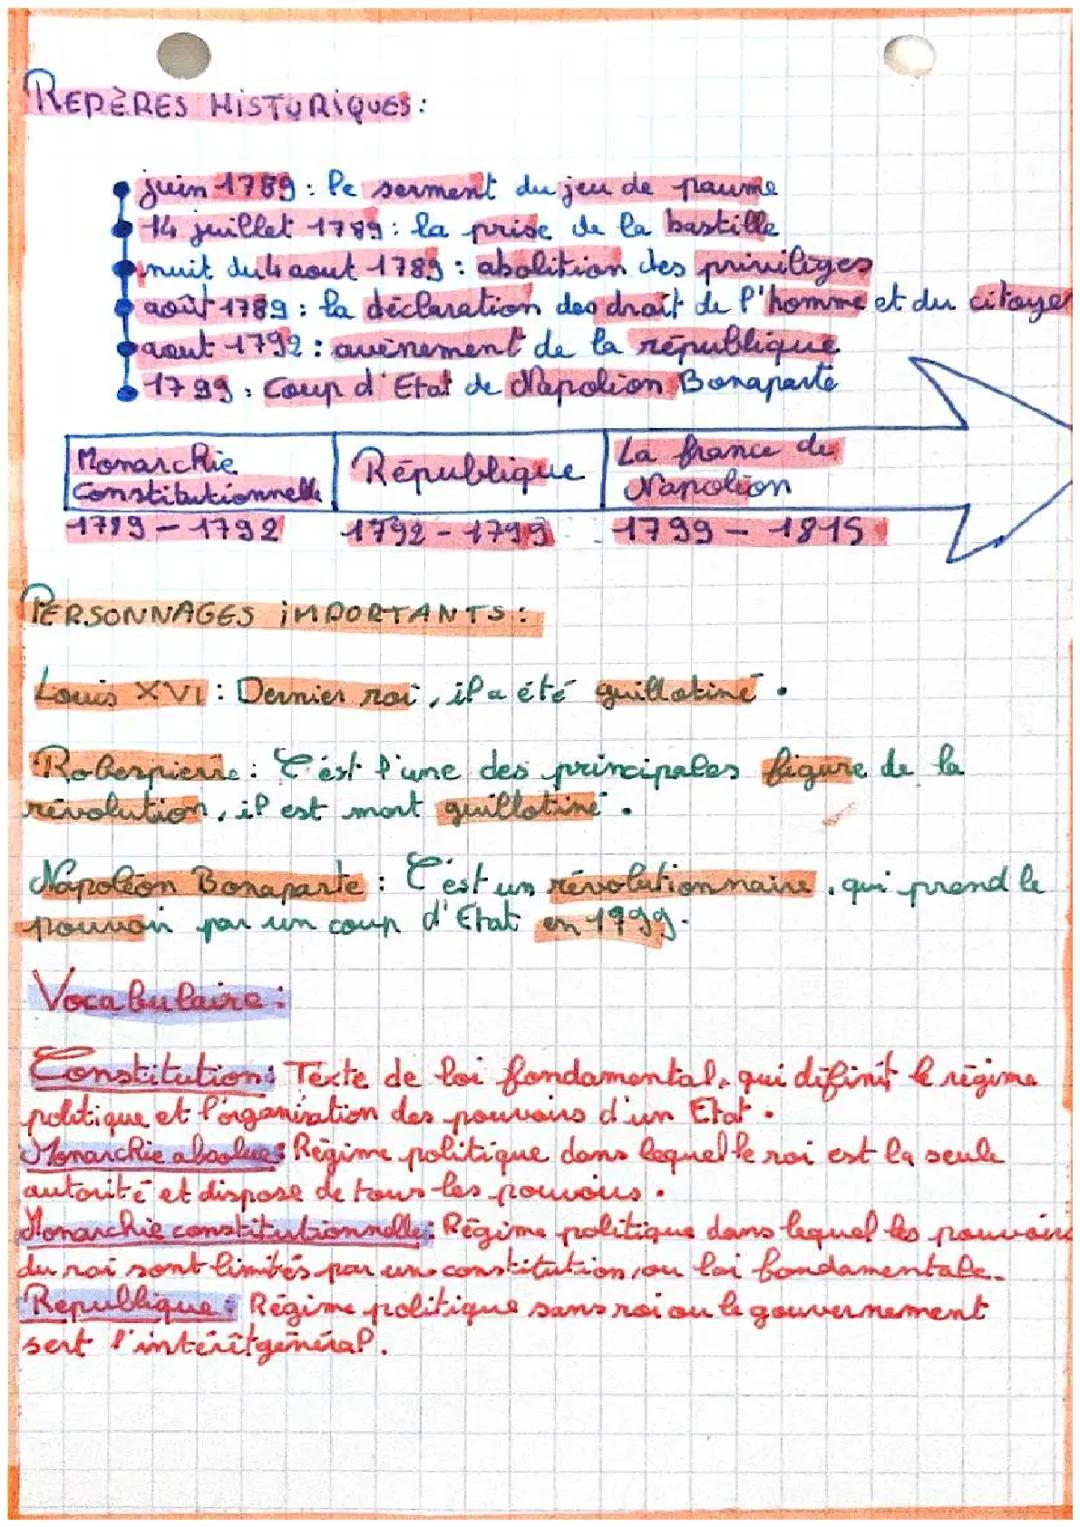 REPÈRES HISTORIQUES:
juin 1789: le serment du jeu de paume
14 juillet 1789: la prise de la bastille
nuit du 4 aout 1789: abolition des privilèges
août 1789: la déclaration des droit de l'homme et du citoyen
aout 1792: avènement de la république
1799: Coup d'Etat de Napoléon Bonaparte
Monarchie Constitutionnelle
République
La france de Napoléon
1789-1792
1792-1799
1799-1815
PERSONNAGES IMPORTANTS:
Louis XVI: Dernier roi, il a été guillotiné.
Roberspierre: C'est l'une des principales figure de la
révolution, il est mort guillotiné.
Napoléon Bonaparte: C'est un révolutionnaire, qui prend le
pouvoir par un coup d'Etat en 1999.
Vocabulaire:
Constitution: Texte de loi fondamental, qui définit le régime
politique et l'organisation des pouvoirs d'un Etat.
Monarchie absolue: Régime politique dans lequel le roi est la seule
autorité et dispose de tous les pouvoirs.
Monarchie constitutionnelle: Régime politique dans lequel les pouvoirs
du roi sont limités par une constitution, ou loi fondamentale.
République: Régime politique sans roi ou le gouvernement
sert l'intérêt général.